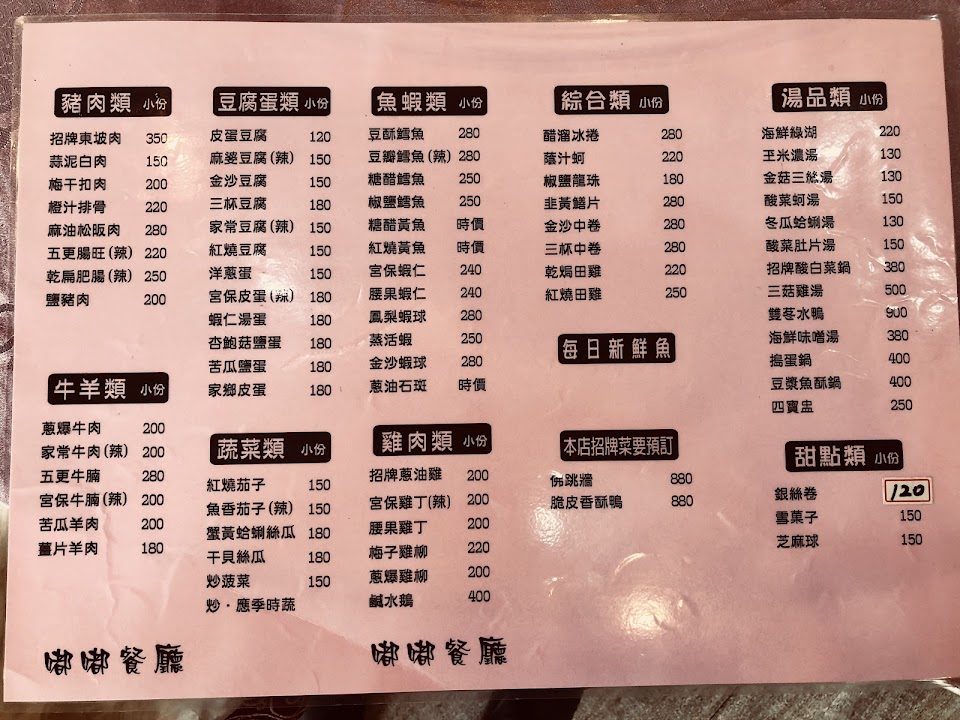 豬肉類 小份
招牌東坡肉 350
蒜泥白肉 150
梅干扣肉 200
橙汁排骨 220
麻油松阪肉 280
五更腸旺(辣) 220
乾扁肥腸(辣) 250
鹽豬肉 200
牛羊類 小份
蔥爆牛肉 200
家常牛肉(辣) 200
五更牛腩 280
宮保牛腩(辣) 200
苦瓜羊肉 200
薑片羊肉 180
豆腐蛋類 小份
皮蛋豆腐 120
麻婆豆腐(辣) 150
金沙豆腐 150
三杯豆腐 180
家常豆腐(辣) 150
紅燒豆腐 150
洋蔥蛋 150
宮保皮蛋(辣) 180
蝦仁湯蛋 180
杏鮑菇鹽蛋 180
苦瓜鹽蛋 180
家鄉皮蛋 180
蔬菜類 小份
紅燒茄子 150
魚香茄子(辣) 150
蟹黃蛤蜊絲瓜 180
干貝絲瓜 180
炒菠菜 150
炒·應季時蔬
魚蝦類 小份
豆酥鱈魚 280
豆瓣鱈魚(辣) 280
糖醋鱈魚 250
椒鹽鱈魚 250
糖醋黃魚 時價
紅燒黃魚 時價
宮保蝦仁 240
腰果蝦仁 240
鳳梨蝦球 280
蒸活蝦 250
金沙蝦球 280
蔥油石斑 時價
雞肉類 小份
招牌蔥油雞 200
宮保雞丁(辣) 200
腰果雞丁 200
梅子雞柳 220
蔥爆雞柳 200
鹹水鵝 400
綜合類 小份
醋溜冰捲 280
蔭汁蚵 220
椒鹽龍珠 180
韭黃鱔片 280
金沙中卷 280
三杯中卷 280
乾焗田雞 220
紅燒田雞 250
每日新鮮魚
本店招牌菜要預訂
佛跳牆 880
脆皮香酥鴨 880
湯品類 小份
海鮮綠湖 220
玊米濃湯 130
金菇三絲湯 130
酸菜蚵湯 150
冬瓜蛤蜊湯 130
酸菜肚片湯 150
招牌酸白菜鍋 380
三菇雞湯 500
雙苳水鴨 900
海鮮味噌湯 380
搗蛋鍋 400
豆漿魚酥鍋 400
四寶盅 250
甜點類 小份
銀絲卷 120
雪菓子 150
芝麻球 150
嘟嘟餐廳
嘟嘟餐廳